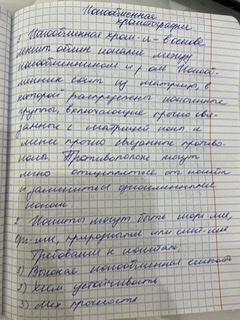 Ионообменная
хроматография
1. Ионообменная хром-я - в основе
лежит обмен ионами между
ионообменником и р-ом. Ионооб-
менник сост. из матрицы, в
которой распределены ионогенные
группы, включающие прочно свя-
занные с матрицей ионы и
менее прочно связанные противо-
ионы. Противоионы могут
легко отщепляться от ионита
и замещаться одноименными
ионами.
2. Иониты могут быть
природные или
Требования к ионитам:
1) Высокая ионообменная емкость
2) Хим. устойчивость
3) Мех. прочность